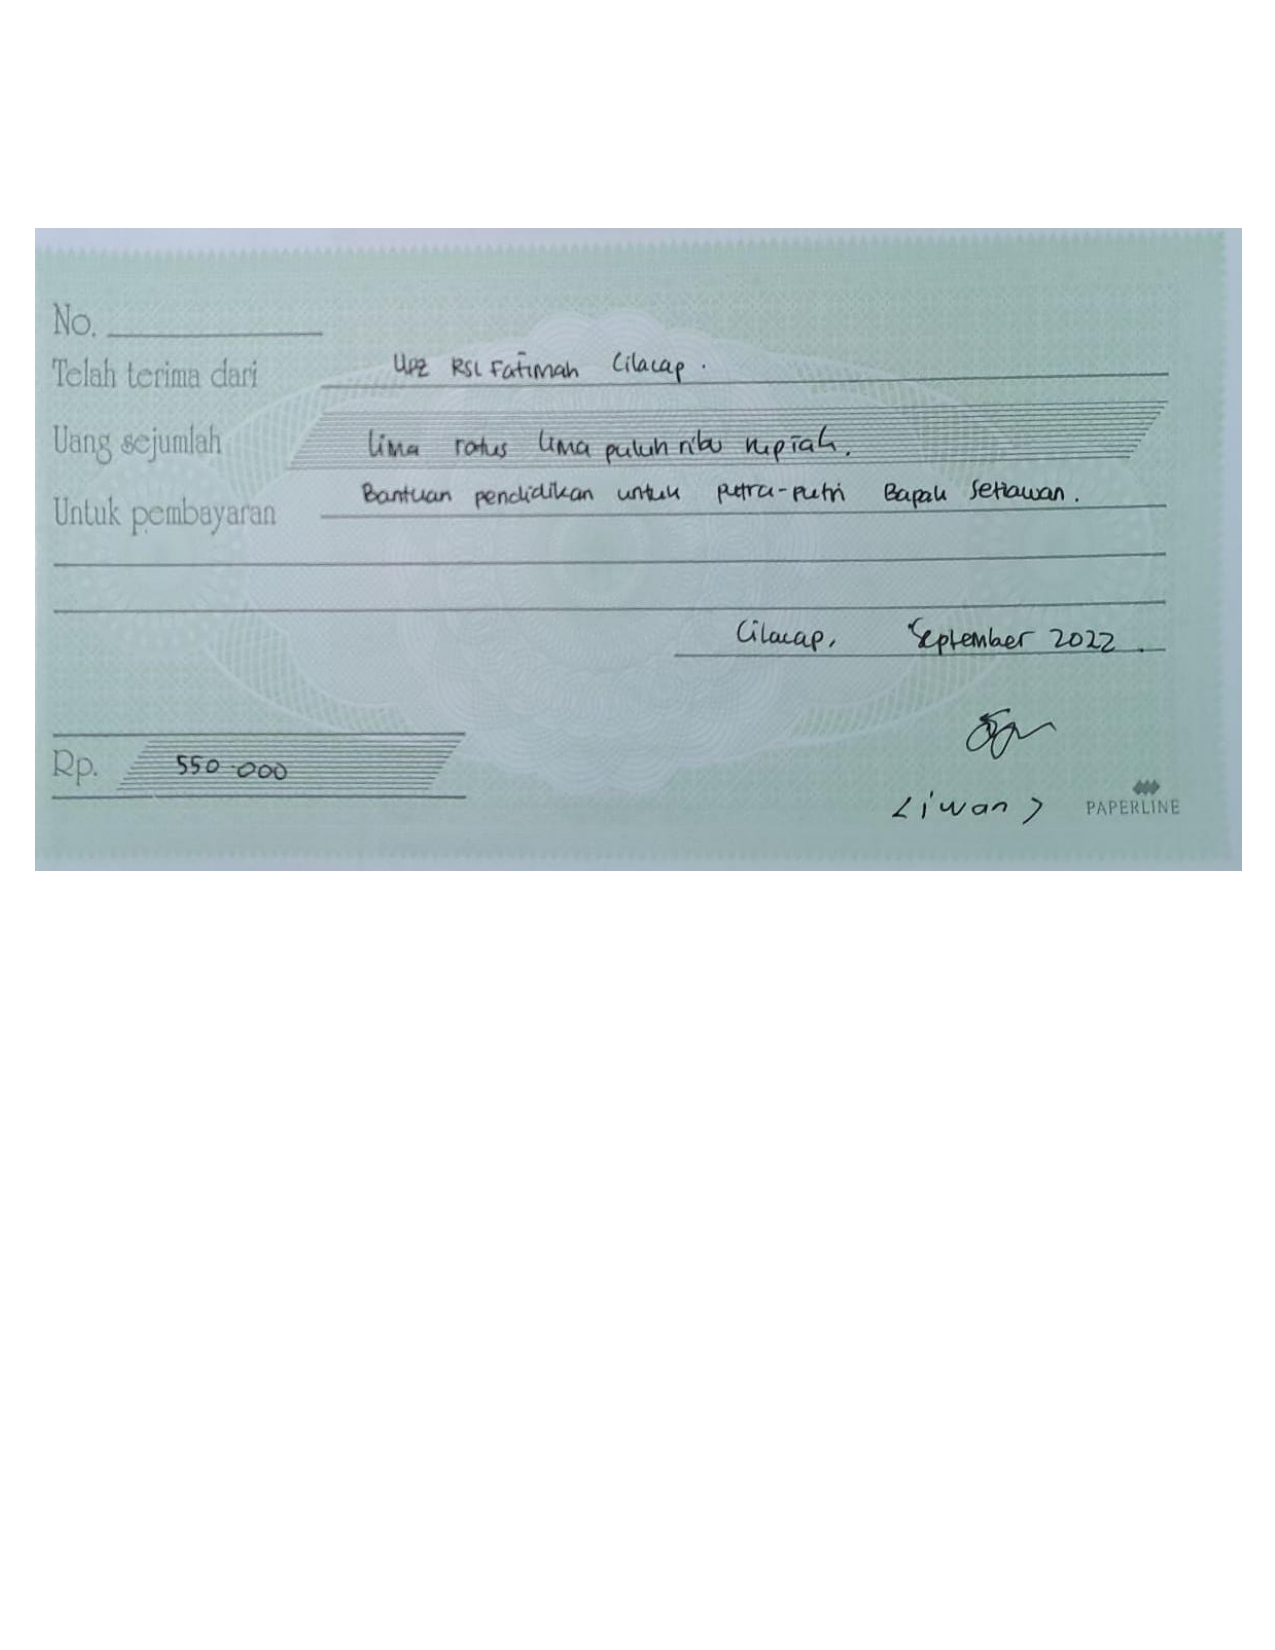 No.
Telah terima dari UPZ RSI Fatimah Cilacap.
Uang sejumlah lima ratus lima puluh ribu rupiah.
Untuk pembayaran Bantuan pendidikan untuk putra-putri Bapak Setiawan.
Cilacap, September 2022.
Rp. 550.000
<iwan>
PAPERLINE